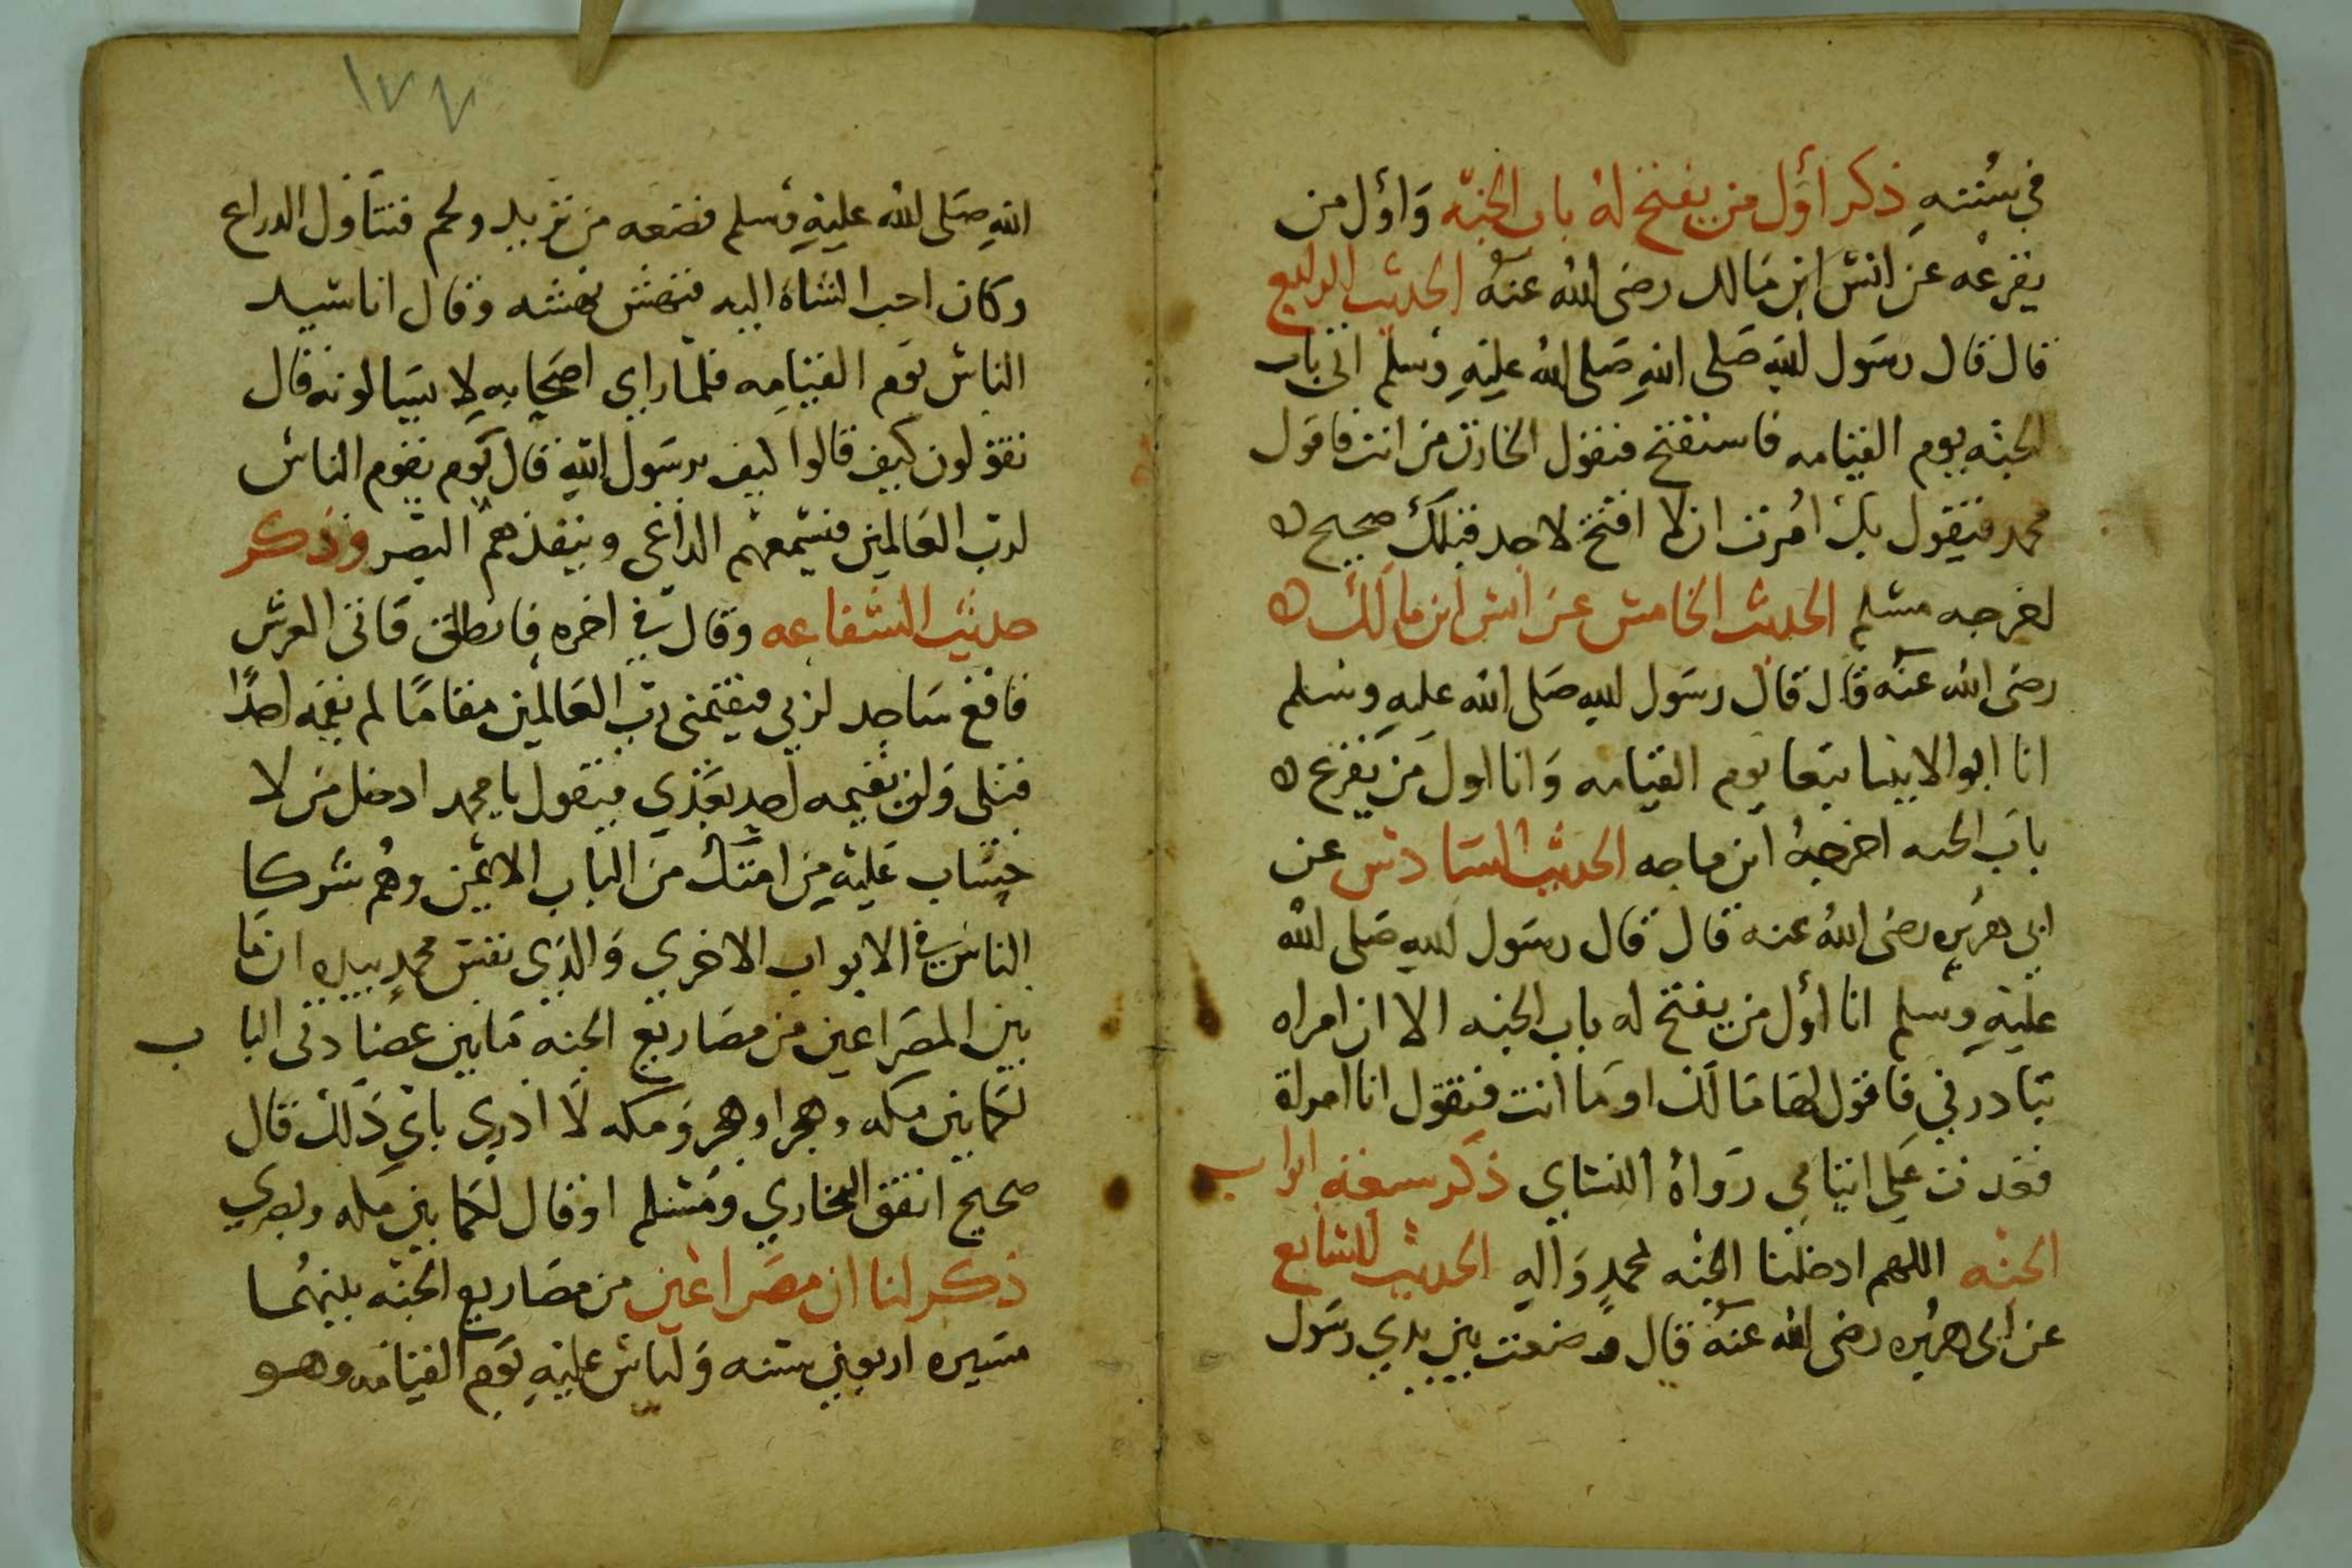 في سُننه ذكر أول من يفتح له باب الجنه وَاول من
يقرعه عن انس ابن مَالك رضى الله عنه الحديث الرابع
قال قال رسَول الله صَلى الله صَلى الله عليه وسلم اتى باب
الجنه يوم القيامه فاستفتح فيقول الخازن من انت فاقول
محمد فيقول بك امُرت ان لا افتح لاحد قبلك صحيح
اخرجه مسلم الحديث الخامس عن انس ابن مالك
رضى الله عنه قال قال رسَول الله صَلى الله عليه وسلم
انا ابوالانبيا تبعا يوم القيامه وَانا اول مَن يَقرع
باب الجنه اخرجه ابن ماجه الحديث السادس عن
ابى هريره رضى الله عنه قال قال رسَول الله صَلى الله
عليه وسلم انا اول من يفتح له باب الجنه الا ان امراه
تبادرني فاقول لها مَا لك او مَا انت فتقول انا امراة
قعدت عَلى ايتامي رَواهُ النساي ذكر سعة ابواب
الجنه اللهم ادخلنا الجنه لمحمدٍ وَاله الحديث السابع
عن ابى هريره رضى الله عنه قال وضعت بين يدي رسَول
١٧٧
الله صَلى الله عليه وسلم قصعه من ثريد ولحم فتناول الدراع
وكان احب الشاة اليه فنهش نهشه وقال انا سيد
الناس يوم القيامه فلما راي اصحابه لا يسالونه قال
تقولون كيف قالوا كيف يرسَول الله قال يوم يقوم الناس
لرب العَالمين فيسمعهم الداعى وينفذهم البصر وذكر
حديث الشفاعه وقال في اخره فانطلق فاتى العرش
فاقع سَاجد لربي فيقيمنى رب العَالمين مقامًا لم يقمه احدًا
قبلي وَلن يقيمه احد بعَدي فيقول يا محمد ادخل من لا
حساب عليه من امتك من الباب الايمن وهُم شركا
الناس في الابواب الاخري وَالذي نفس محمدٍ بيده ان مَا
بين المصَراعين من مصَاريع الجنه مَا بين عضَادتى الباب
لكما بين مكه وهجر او هجر وَمكه لا ادري باي ذلك قال
صحيح اتفق البخاري ومُسلم او قال لكما بين مكه وبصري
ذكر لنا ان مصَراعين من مصَاريع الجنه بينهُما
مسَيره اربعين سنه وَلياتين عليه يَوم القيامه وهو